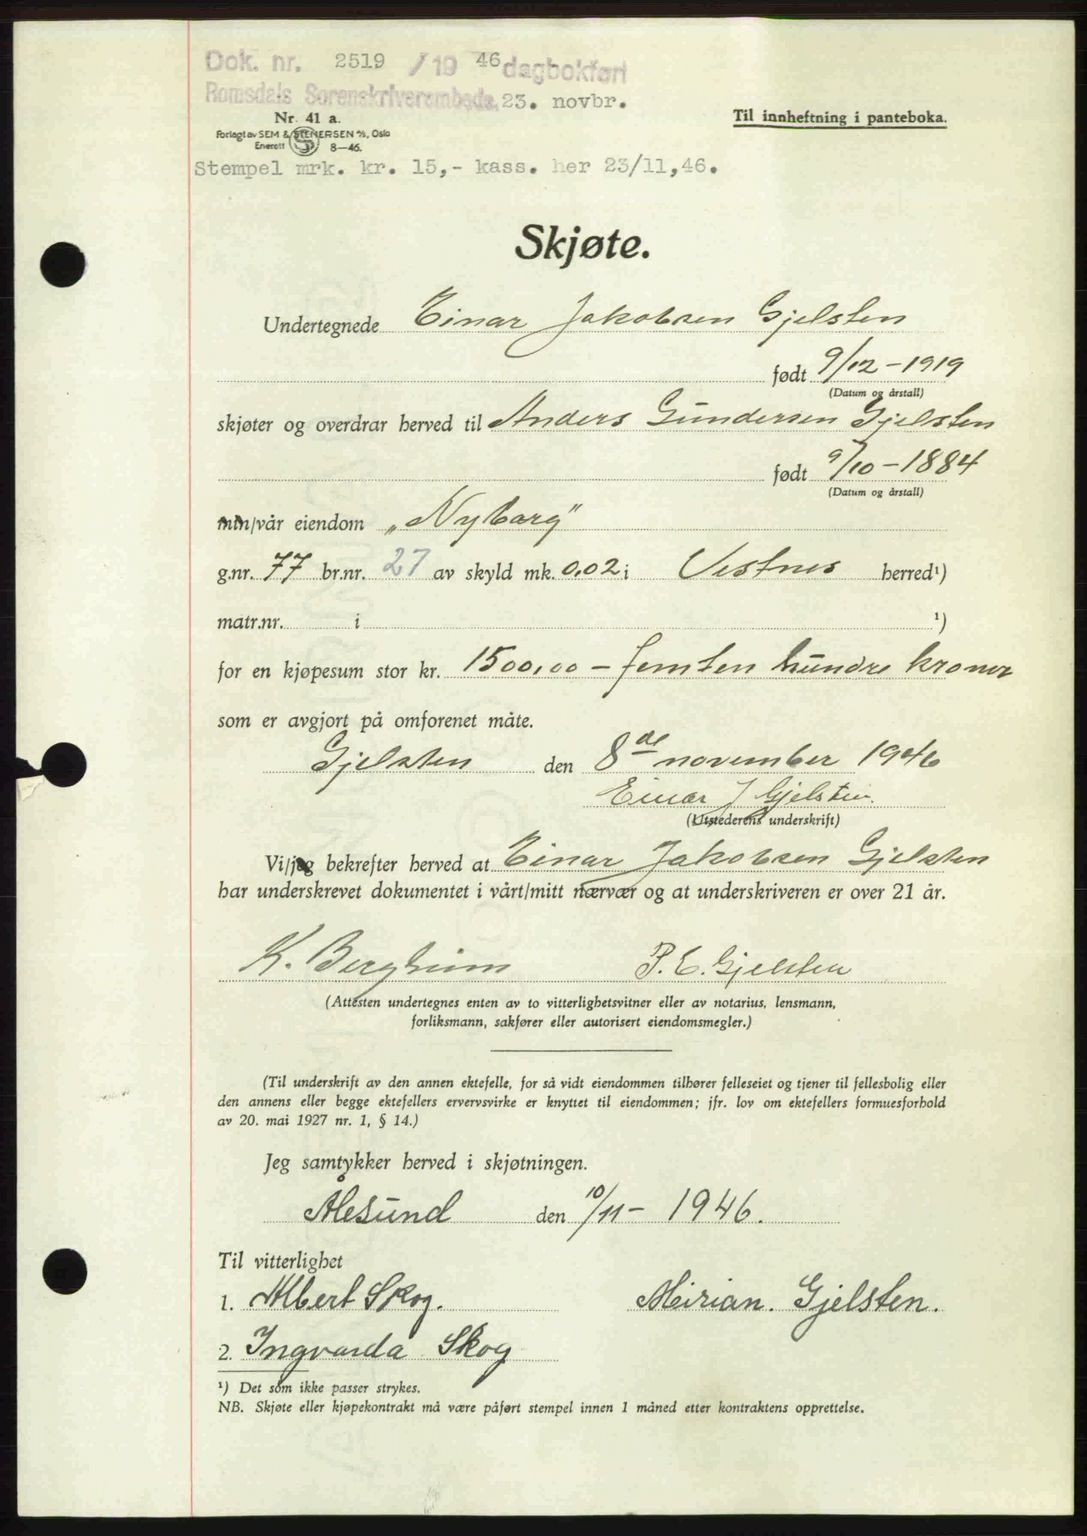 Dok. nr. 2519 / 19 46 dagbokført
Romsdals Sorenskriverembede, 23. novbr.
Nr. 41 a.
Til innheftning i panteboka.
Forlagt av SEM & STENERSEN A/S, Oslo
Enerett 8—46.
Stempel mrk. kr. 15,- kass. her 23/11,46.
Skjøte.
Undertegnede Einar Jakobsen Gjelsten
født 9/12 - 1919
(Datum og årstall)
skjøter og overdrar herved til Anders Gundersen Gjelsten
født 9/10 - 1884
(Datum og årstall)
min/vår eiendom „Nyborg"
g.nr. 77 br.nr. 27 av skyld mk. 0,02 i Vestnes herred¹)
matr.nr. i ¹)
for en kjøpesum stor kr. 1500,00 - femten hundre kroner
som er avgjort på omforenet måte.
Gjelsten den 8de november 1946
Einar J Gjelsten.
(Utstederens underskrift)
Vi/jeg bekrefter herved at Einar Jakobsen Gjelsten
har underskrevet dokumentet i vårt/mitt nærvær og at underskriveren er over 21 år.
K. Bergheim P. E. Gjelsten
(Attesten undertegnes enten av to vitterlighetsvitner eller av notarius, lensmann,
forliksmann, sakfører eller autorisert eiendomsmegler.)
(Til underskrift av den annen ektefelle, for så vidt eiendommen tilhører felleseiet og tjener til fellesbolig eller
den annens eller begge ektefellers ervervsvirke er knyttet til eiendommen; jfr. lov om ektefellers formuesforhold
av 20. mai 1927 nr. 1, § 14.)
Jeg samtykker herved i skjøtningen.
Ålesund den 10/11- 1946.
Til vitterlighet
1. Albert Skog. Mirian. Gjelsten.
2. Ingvarda Skog
¹) Det som ikke passer strykes.
NB. Skjøte eller kjøpekontrakt må være påført stempel innen 1 måned etter kontraktens opprettelse.